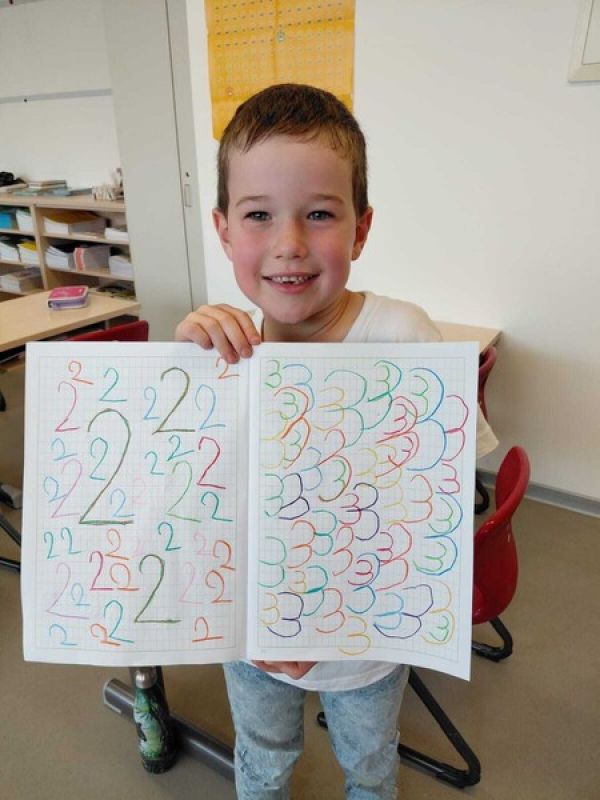 2 2 2
2 2 2 2
2 2 2 2 2 2
2 2 2 2 2 2
2 2 2 2 2 2
2 2 2 2 2 2 2
2 2 2 2
3 3 3 3 3
3 3 3 3 3
3 3 3 3 3
3 3 3 3 3
3 3 3 3 3
3 3 3 3 3
3 3 3 3 3